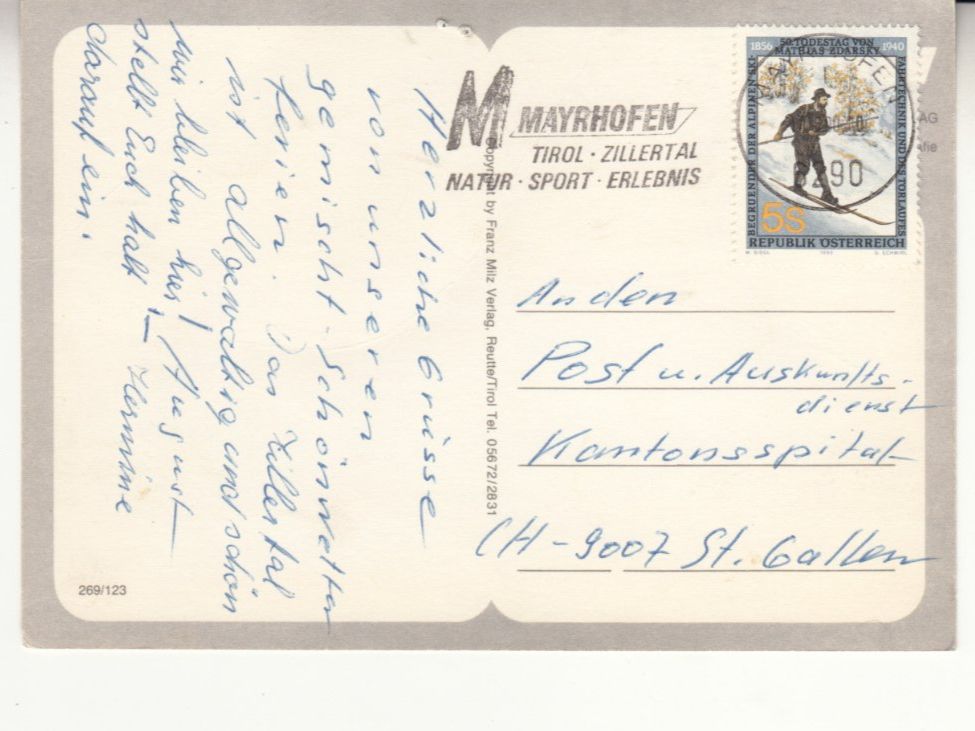 Herzliche Grüsse
von unseren
gemischt-Schönwetter
ferien. Das Zillertal
ist allgewaltig und schön
wir bleiben hier! August
stellt Euch halt –
darauf ein. Hermine
269/123
Copyright by Franz Milz Verlag, Reutte/Tirol Tel. 05672/2831
M MAYRHOFEN
TIROL · ZILLERTAL
NATUR · SPORT · ERLEBNIS
1856 50. TODESTAG VON MATHIAS ZDARSKY 1940
BEGRUENDER DER ALPINEN SKI-
FAHRTECHNIK UND DES TORLAUFES
5S
REPUBLIK ÖSTERREICH
MAYRHOFEN
6290
AG
An den
Post u. Auskunfts-
dienst
Kantonsspital
CH-9007 St. Gallen